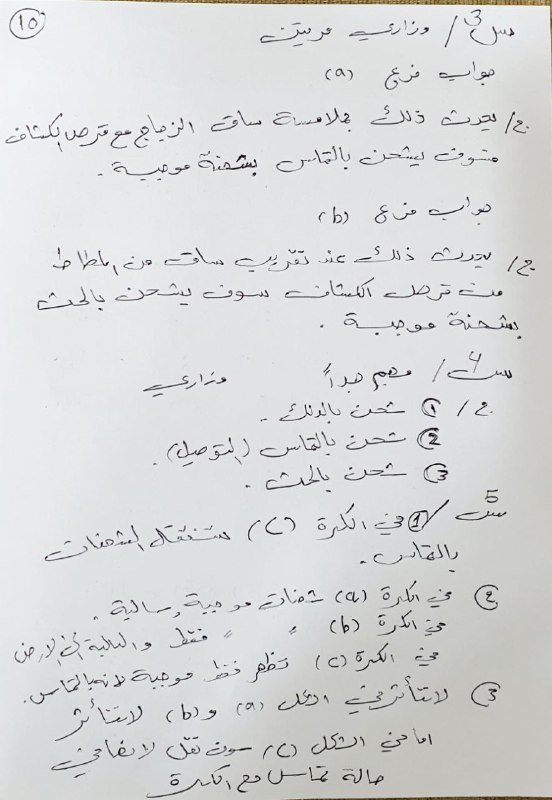 10
س3/ وزاري مرتين
جواب فرع (a)
ج/ يحدث ذلك بملامسة ساق الزجاج مع قرص الكشاف
سوف يشحن بالتماس بشحنة موجبة.
جواب فرع (b)
ج/ يحدث ذلك عند تقريب ساق من المطاط
من قرص الكشاف سوف يشحن بالحث
بشحنة موجبة.
س4/ مهم جداً وزاري
ج/ ① شحن بالدلك.
② شحن بالتماس (التوصيل).
③ شحن بالحث.
س5/ ① في الكرة (C) ستنتقل الشحنات
بالتماس.
② في الكرة (a) شحنات موجبة وسالبة.
في الكرة (b) = = فقط والسالبة الى الارض
في الكرة (c) تظهر فقط موجبة لانه بالتماس.
③ لا تتأثر في الشكل (a) و (b) لا تتأثر
اما في الشكل (C) سوف تقل لانها في
حالة تماس مع الكرة